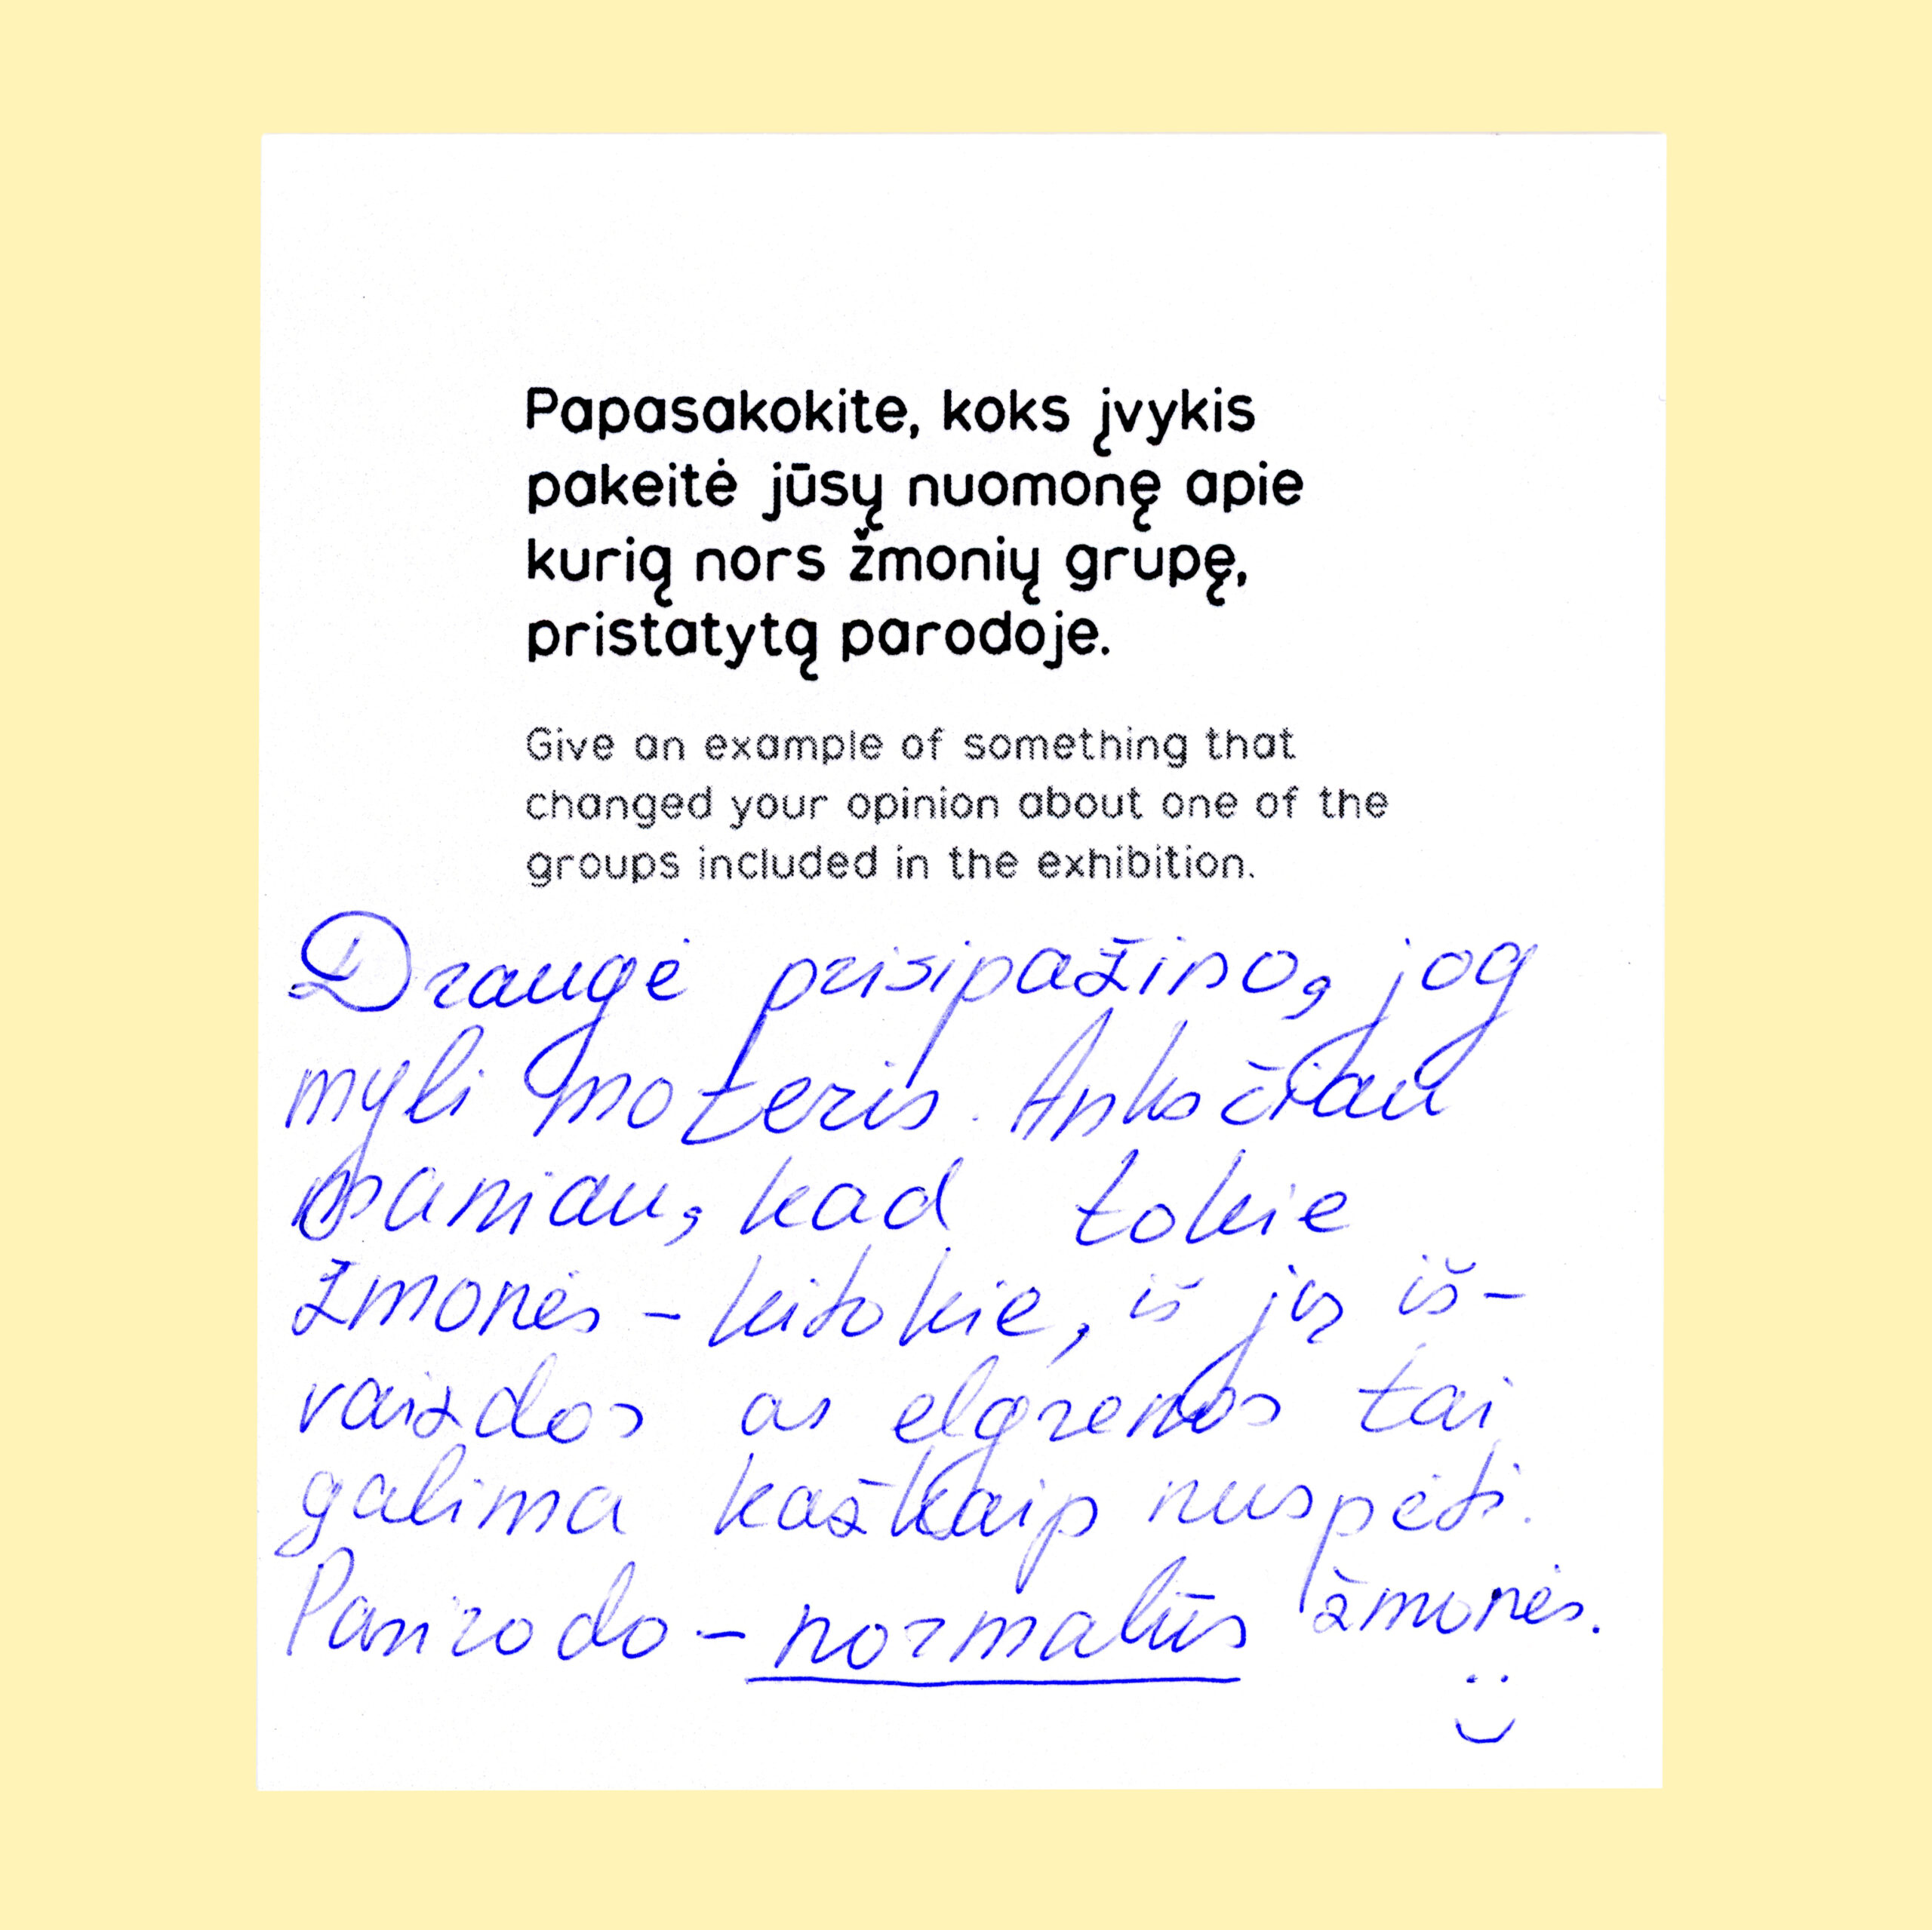 Papasakokite, koks įvykis
pakeitė jūsų nuomonę apie
kurią nors žmonių grupę,
pristatytą parodoje.
Give an example of something that
changed your opinion about one of the
groups included in the exhibition.
Draugė prisipažino, jog
myli moteris. Anksčiau
maniau, kad tokie
žmonės – kitokie, iš jų iš-
vaizdos ar elgsenos tai
galima kažkaip nuspėti.
Pasirodo – normalūs žmonės.
:)